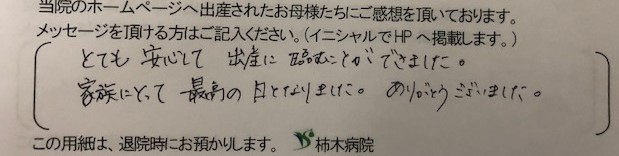 当院のホームページへ出産されたお母様たちにご感想を頂いております。
メッセージを頂ける方はご記入ください。(イニシャルでHPへ掲載します。)
とても 安心して 出産に 臨むことが できました。
家族にとって 最高の 日となりました。 ありがとうございました。
この用紙は、退院時にお預かりします。 柿木病院